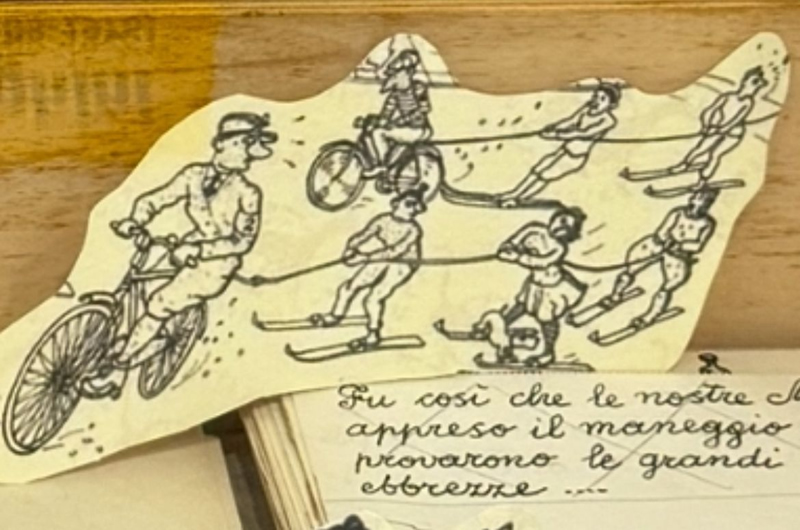 Fu così che le nostre
appreso il maneggio
provarono le grandi
ebbrezze ....